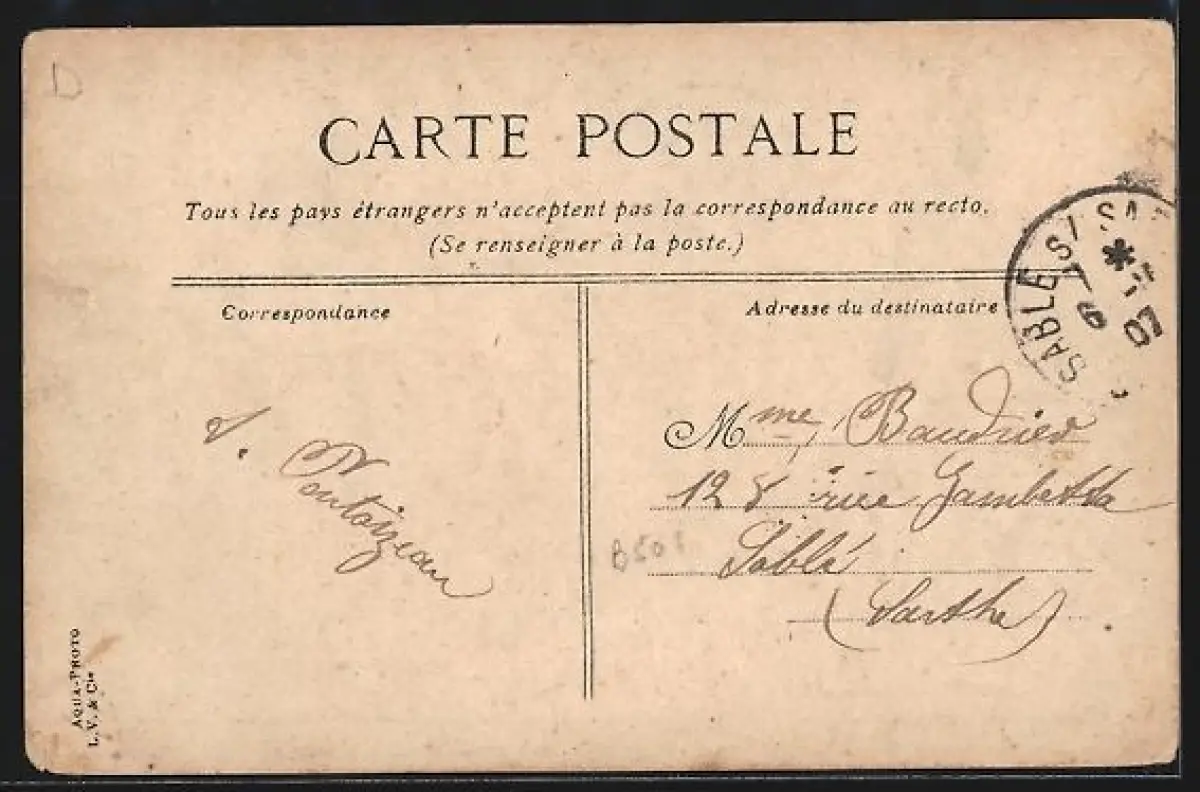 D
CARTE POSTALE
Tous les pays étrangers n'acceptent pas la correspondance au recto.
(Se renseigner à la poste.)
SABLÉ S/ SA
7
9
07
Correspondance
Adresse du destinataire
Pontoizeau
Mme Baudrier
128 rue Gambetta
Sablé
(Sarthe)
AQUA-PHOTO
L. V. & Cie